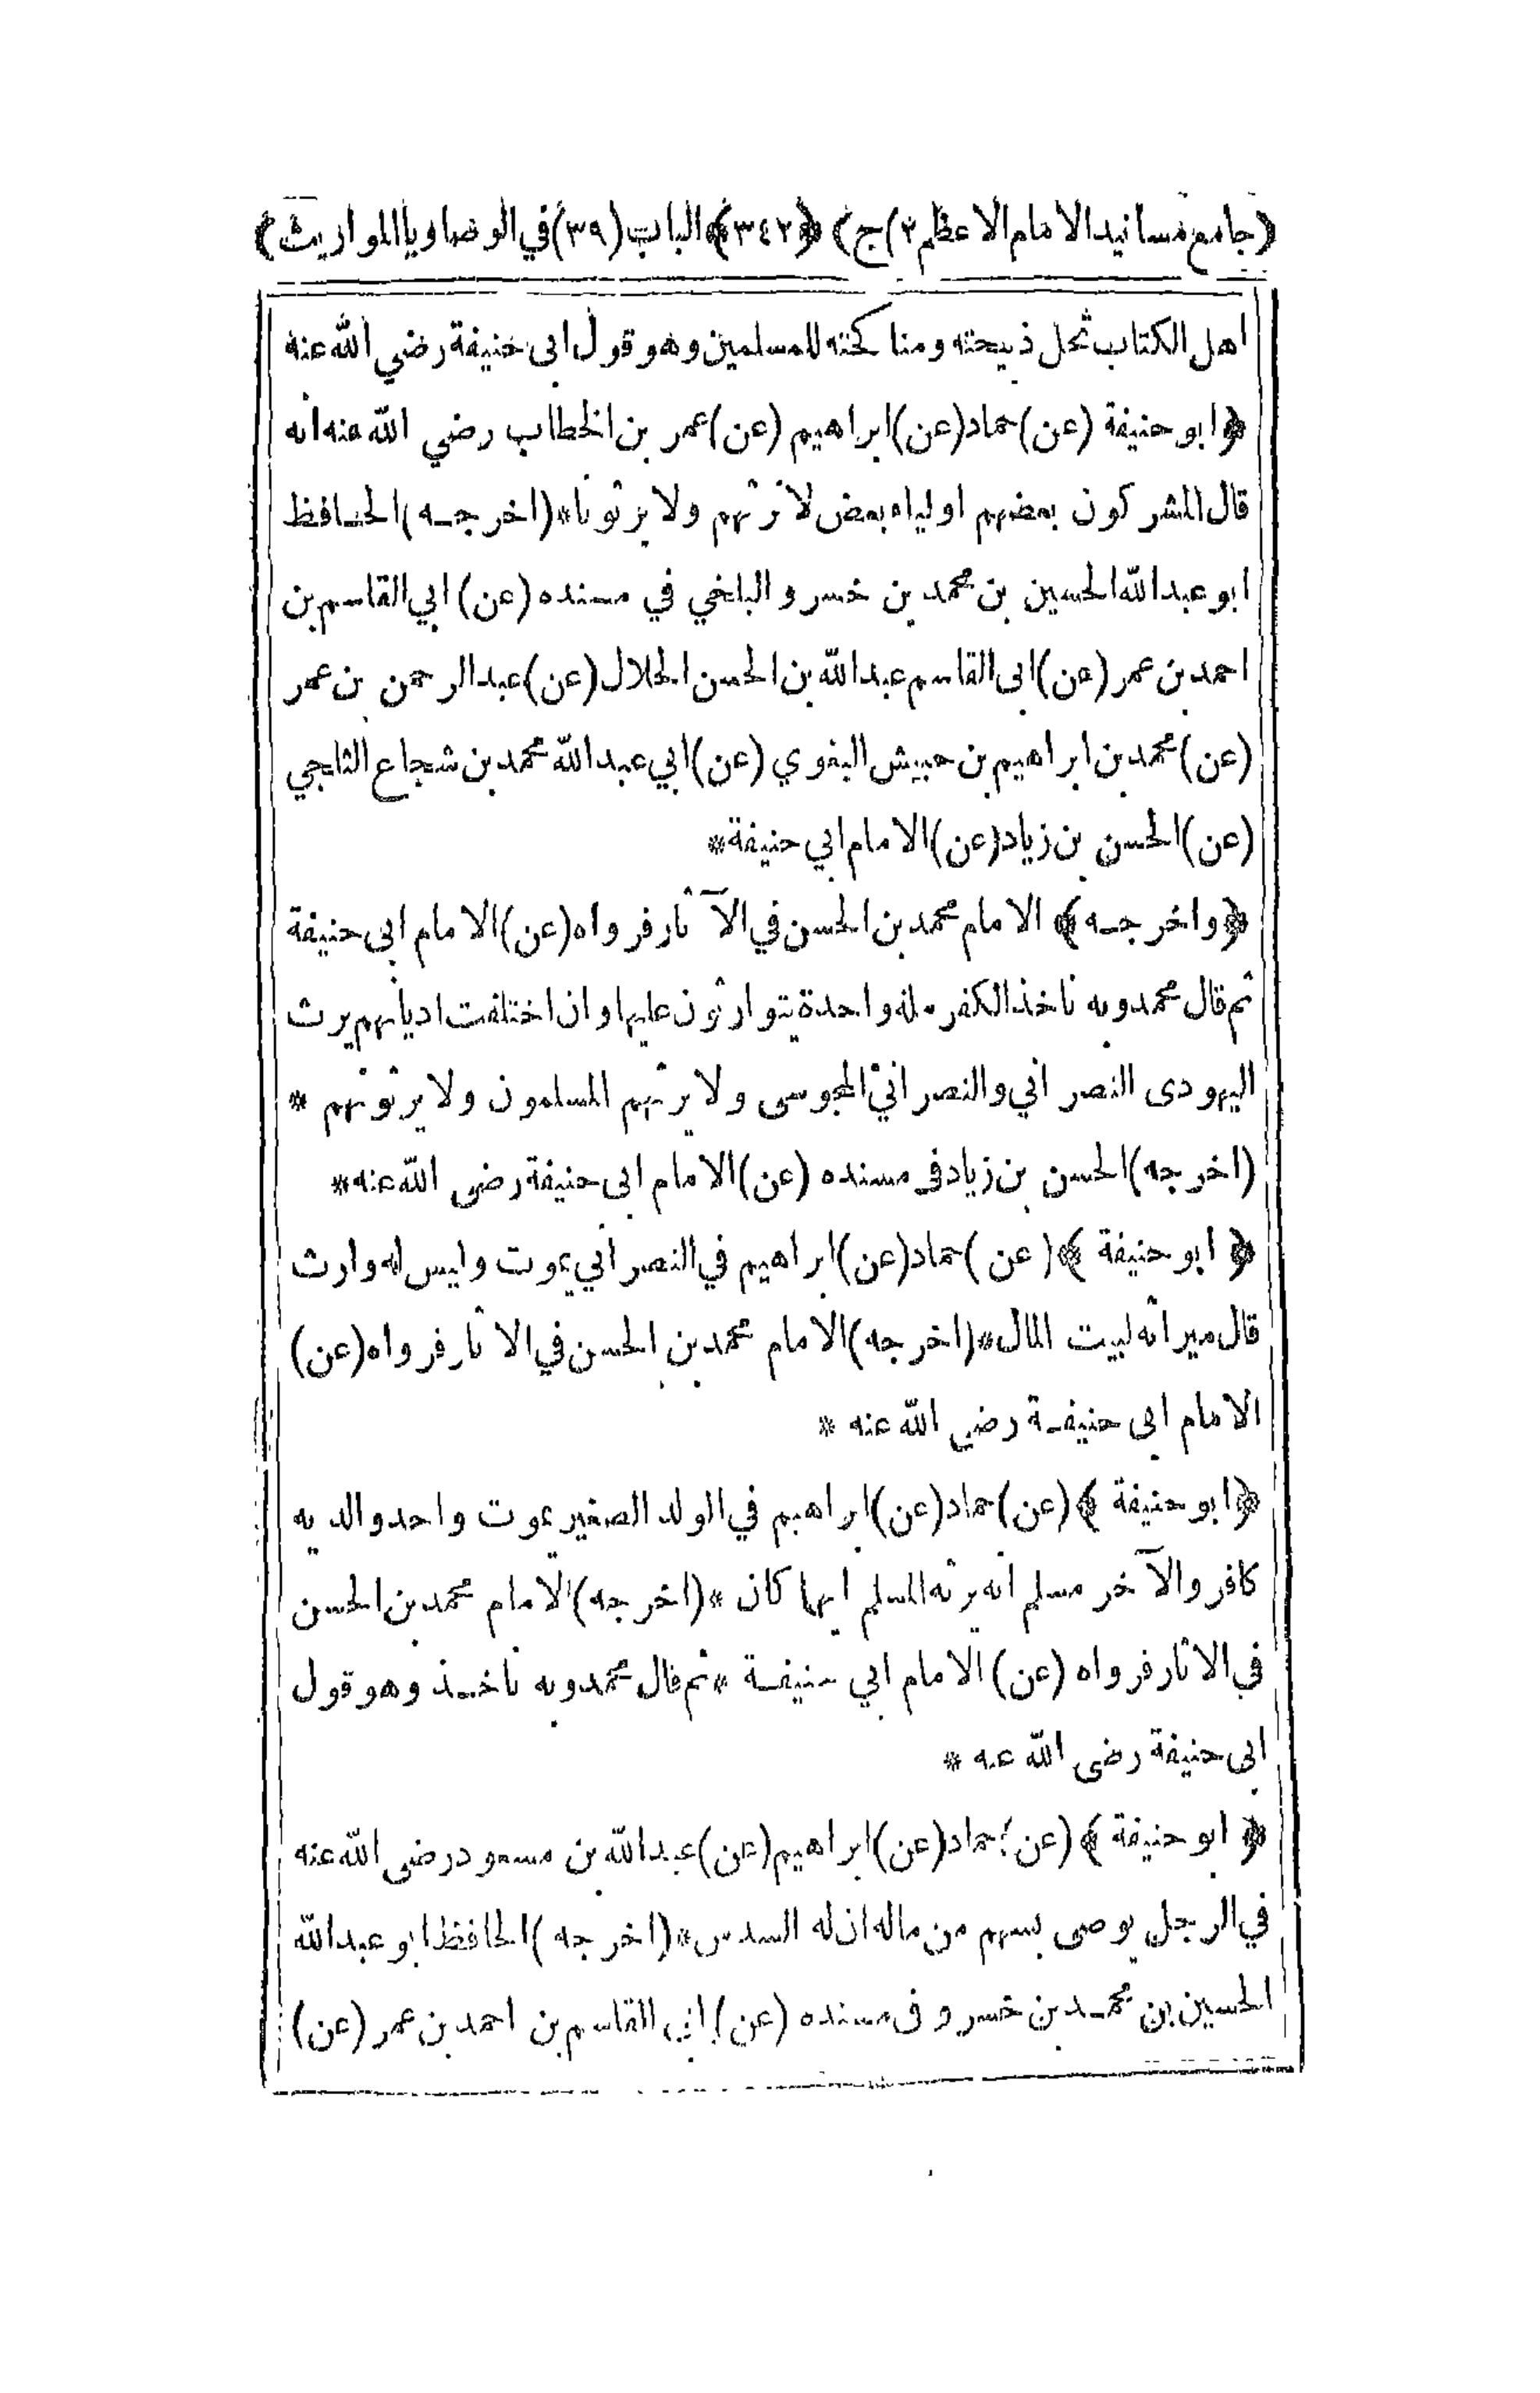 (جامع مسانيد الامام الاعظم ٢)ج) ﴿٣٤٢﴾ الباب (٣٩) في الوصاويا المواريث)
اهل الكتاب تحل ذبيحته ومناكحته للمسلمين وهو قول ابى حنيفة رضي الله عنه
﴿ابو حنيفة (عن) حماد (عن) ابراهيم (عن) عمر بن الخطاب رضي الله عنه انه
قال المشركون بعضهم اولياء بعض لا نرثهم ولا يرثونا*(اخرجـه) الحـافظ
ابو عبد الله الحسين بن محمد بن خسرو البلخي في مسنده (عن) ابي القاسم بن
احمد بن عمر (عن) ابى القاسم عبد الله بن الحسن الخلال (عن) عبد الرحمن بن عمر
(عن) محمد بن ابراهيم بن حبيش البغوي (عن) ابي عبد الله محمد بن شجاع الثلجي
(عن) الحسن بن زياد (عن) الامام ابي حنيفة*
﴿واخرجـه﴾ الامام محمد بن الحسن في الآثار فرواه (عن) الامام ابى حنيفة
ثم قال محمد وبه ناخذ الكفر ملة واحدة يتوارثون عليها وان اختلفت اديانهم يرث
اليهودى النصراني والنصراني المجوسى ولا يرثهم المسلمون ولا يرثونهم *
(اخرجه) الحسن بن زياد في مسنده (عن) الامام ابى حنيفة رضى الله عنه*
﴿ابو حنيفة﴾ (عن) حماد (عن) ابراهيم في النصراني يموت وليس له وارث
قال ميراثه لبيت المال*(اخرجه) الامام محمد بن الحسن في الاثار فرواه (عن)
الامام ابى حنيفـة رضي الله عنه *
﴿ابو حنيفة﴾ (عن) حماد (عن) ابراهيم في الولد الصغير يموت واحد والديه
كافر والآخر مسلم انه يرثه المسلم ايهما كان *(اخرجه) الامام محمد بن الحسن
في الاثار فرواه (عن) الامام ابي حنيفـة * ثم قال محمد وبه ناخـذ وهو قول
ابى حنيفة رضى الله عنه *
﴿ابو حنيفة﴾ (عن) حماد (عن) ابراهيم (عن) عبد الله بن مسعود رضى الله عنه
في الرجل يوصى بسهم من ماله ان له السدس*(اخرجه) الحافظ ابو عبد الله
الحسين بن محمـد بن خسرو فى مسنده (عن) ابي القاسم بن احمد بن عمر (عن)